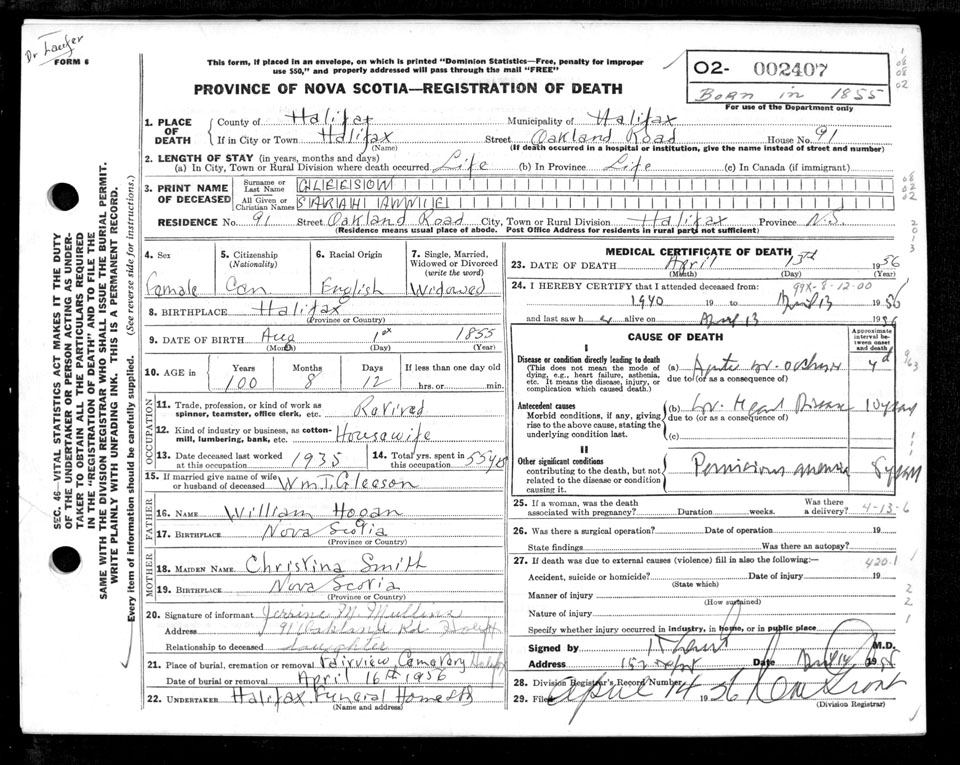 Dr
FORM 6
This form, if placed in an envelope, on which is printed "Dominion Statistics—Free, penalty for improper
use $50," and properly addressed will pass through the mail "FREE"
O2- 002407
Born in 1855
For use of the Department only
PROVINCE OF NOVA SCOTIA—REGISTRATION OF DEATH
SEC. 46—VITAL STATISTICS ACT MAKES IT THE DUTY
OF THE UNDERTAKER OR PERSON ACTING AS UNDER-
TAKER TO OBTAIN ALL THE PARTICULARS REQUIRED
IN THE "REGISTRATION OF DEATH" AND TO FILE THE
SAME WITH THE DIVISION REGISTRAR WHO SHALL ISSUE THE BURIAL PERMIT.
WRITE PLAINLY WITH UNFADING INK. THIS IS A PERMANENT RECORD.
Every item of information should be carefully supplied. (See reverse side for instructions.)
1. PLACE OF DEATH
County of Halifax Municipality of Halifax
If in City or Town Halifax Street Oakland Road House No. 91
(Name) (If death occurred in a hospital or institution, give the name instead of street and number)
2. LENGTH OF STAY (in years, months and days)
(a) In City, Town or Rural Division where death occurred Life (b) In Province Life (c) In Canada (if immigrant)
3. PRINT NAME OF DECEASED
Surname or Last Name GLEESON
All Given or Christian Names SARAH ANNIE
RESIDENCE No. 91 Street Oakland Road City, Town or Rural Division Halifax Province N.S.
(Residence means usual place of abode. Post Office Address for residents in rural parts not sufficient)
4. Sex Female
5. Citizenship (Nationality) Can
6. Racial Origin English
7. Single, Married, Widowed or Divorced (write the word) Widowed
8. BIRTHPLACE Halifax
(Province or Country)
9. DATE OF BIRTH Aug 1st 1855
(Month) (Day) (Year)
10. AGE in Years 100 Months 8 Days 12 If less than one day old hrs. or min.
OCCUPATION
11. Trade, profession, or kind of work as spinner, teamster, office clerk, etc. Retired
12. Kind of industry or business, as cotton-mill, lumbering, bank, etc. Housewife
13. Date deceased last worked at this occupation 1935
14. Total yrs. spent in this occupation 55 yrs
15. If married give name of wife or husband of deceased Wm. T. Gleeson
FATHER
16. NAME William Hogan
17. BIRTHPLACE Nova Scotia
(Province or Country)
MOTHER
18. MAIDEN NAME Christina Smith
19. BIRTHPLACE Nova Scotia
(Province or Country)
20. Signature of informant M Mullins
Address 91 Oakland Rd.
Relationship to deceased daughter
21. Place of burial, cremation or removal Fairview Cemetery
Date of burial or removal April 16th 1956
22. UNDERTAKER Halifax Funeral Home
(Name and address)
MEDICAL CERTIFICATE OF DEATH
23. DATE OF DEATH April 13th 1956
(Month) (Day) (Year)
24. I HEREBY CERTIFY that I attended deceased from:
99X-8-12-00
1940 19 to April 13 1956
and last saw her alive on April 13 1956
CAUSE OF DEATH
Approximate interval between onset and death
I
Disease or condition directly leading to death
(This does not mean the mode of dying, e.g., heart failure, asthenia, etc. It means the disease, injury, or complication which caused death.)
(a) Acute 4 d
due to (or as a consequence of)
Antecedent causes
Morbid conditions, if any, giving rise to the above cause, stating the underlying condition last.
(b) Heart Disease 10 years
due to (or as a consequence of)
(c)
II
Other significant conditions
contributing to the death, but not related to the disease or condition causing it.
Pernicious anemia 8 years
25. If a woman, was the death associated with pregnancy? Duration weeks. Was there a delivery? 4-13-6
26. Was there a surgical operation? Date of operation 19
State findings Was there an autopsy?
27. If death was due to external causes (violence) fill in also the following:— 420-1
Accident, suicide or homicide? Date of injury 19
(State which)
Manner of injury
(How sustained)
Nature of injury
Specify whether injury occurred in industry, in home, or in public place
Signed by M.D.
Address Date April 14 1956
28. Division Registrar's Record Number
29. Filed April 14 1956
(Division Registrar)